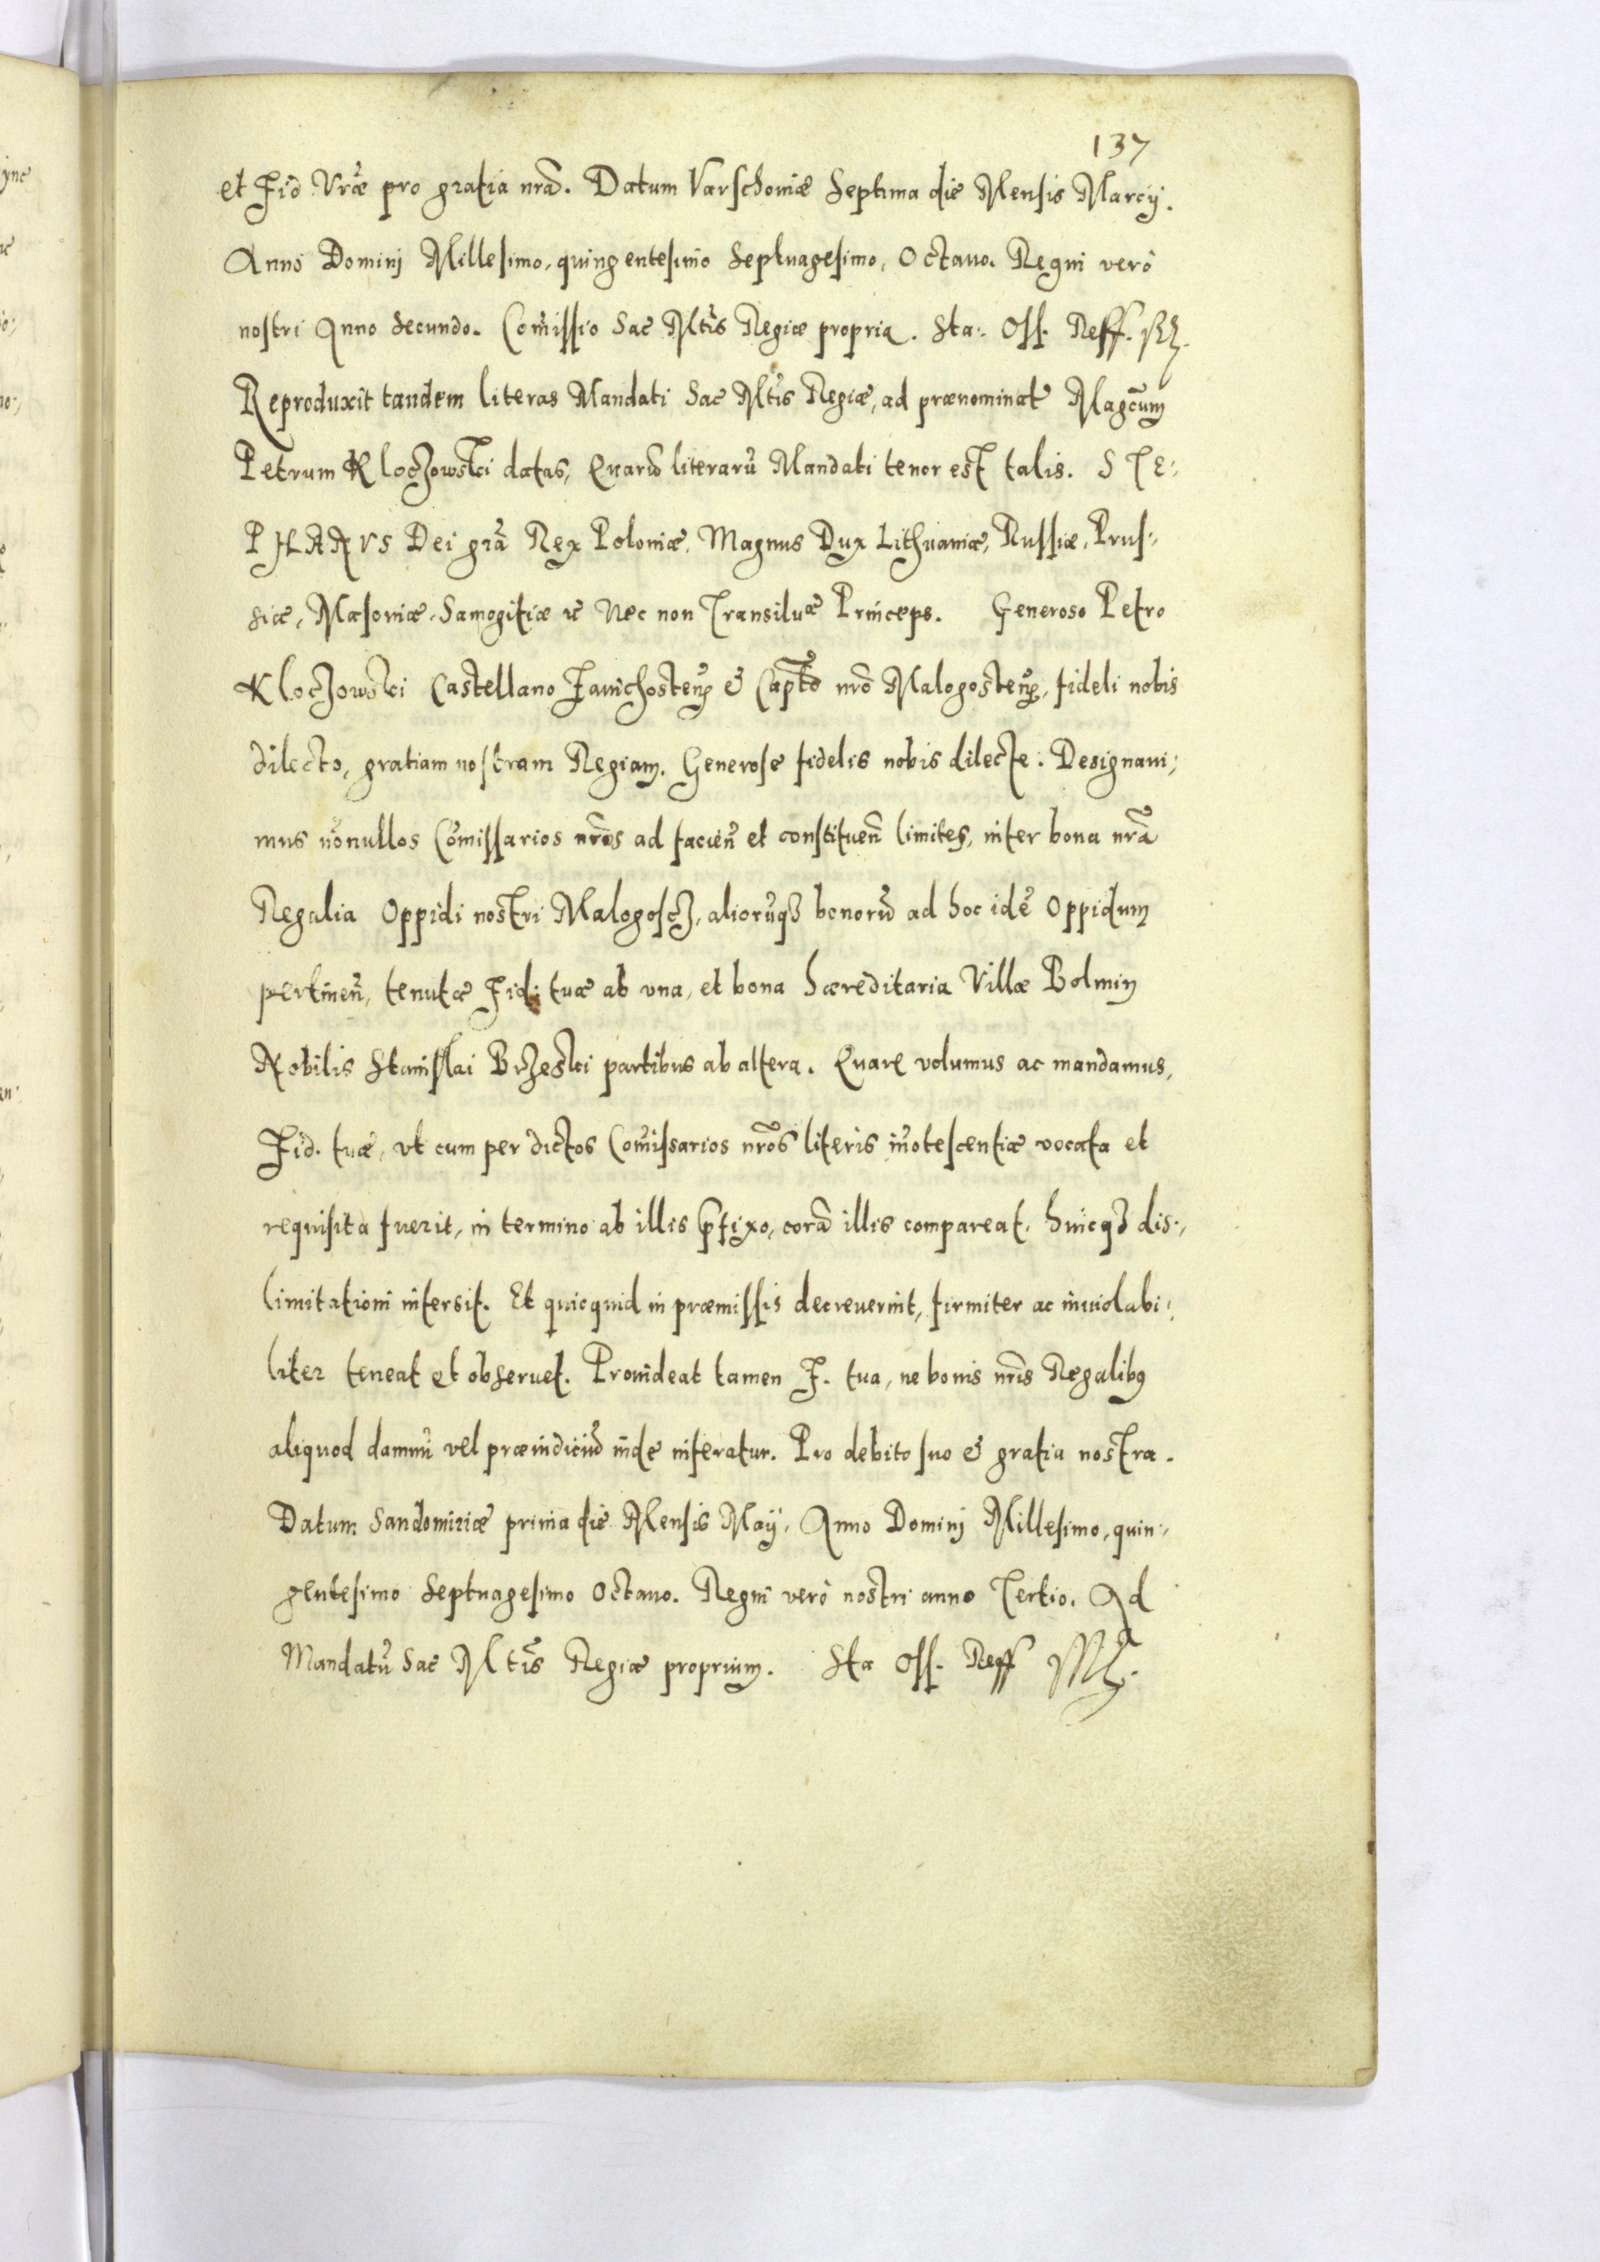 137
et Fid Vræ pro gratia nrã. Datum Varschoniæ Septima die Mensis Marcij.
Anno Dominj Millesimo, quingentesimo Septuagesimo, Octauo. Regni verò
nostri Anno Secundo. Comissio Sac Mtis Regiæ propria. Sta: Oss. Reff.
Reproduxit tandem literas Mandati Sac Mtis Regiæ, ad prænominat Magcum
Petrum Kloczowski datas, Quarũ literarũ Mandati tenor est talis. STE:
PHANVS Dei grã Rex Poloniæ, Magnus Dux Lithuaniæ, Russiæ, Prus:
siæ, Masoniæ, Samogitiæ Nec non Transiluæ Princeps. Generoso Petro
Kloczowski Castellano Zauichosten & Capto nrõ Malogosten, fideli nobis
dilecto, gratiam nostram Regiam. Generose fidelis nobis dilecte. Designaui;
mus nõnullos Cõmissarios nrõs ad facien et constituen limites, inter bona nrã
Regalia Oppidi nostri Malogoscz, aliorũqȝ bonorũ ad hoc idẽ Oppidum
pertinen, tenutæ Fid: tuæ ab vna, et bona hæreditaria Villæ Bolmin
Nobilis Stanislai Brzeski partibus ab altera. Quare volumus ac mandamus,
Fid. tuæ, vt cum per dictos Comissarios nrõs literis iñotescentiæ vocata et
requisita fuerit, in termino ab illis p̃fixo, corã illis compareat, huicqȝ dis:
limitationi intersit. Et quicquid in præmissis decreuerint, firmiter ac inuiolabi:
liter teneat et obseruet. Prouideat tamen F. tua, ne bonis nrĩs Regalibꝰ
aliquod damnũ vel præiudiciũ inde inferatur. Pro debito suo & gratia nostra.
Datum Sandomiriæ prima die Mensis Maÿ, Anno Dominj Millesimo, quin:
gentesimo Septuagesimo Octauo. Regni verò nostri anno Tertio. Ad
Mandatũ Sac Mtis Regiæ proprium. Sta Oss. Reff